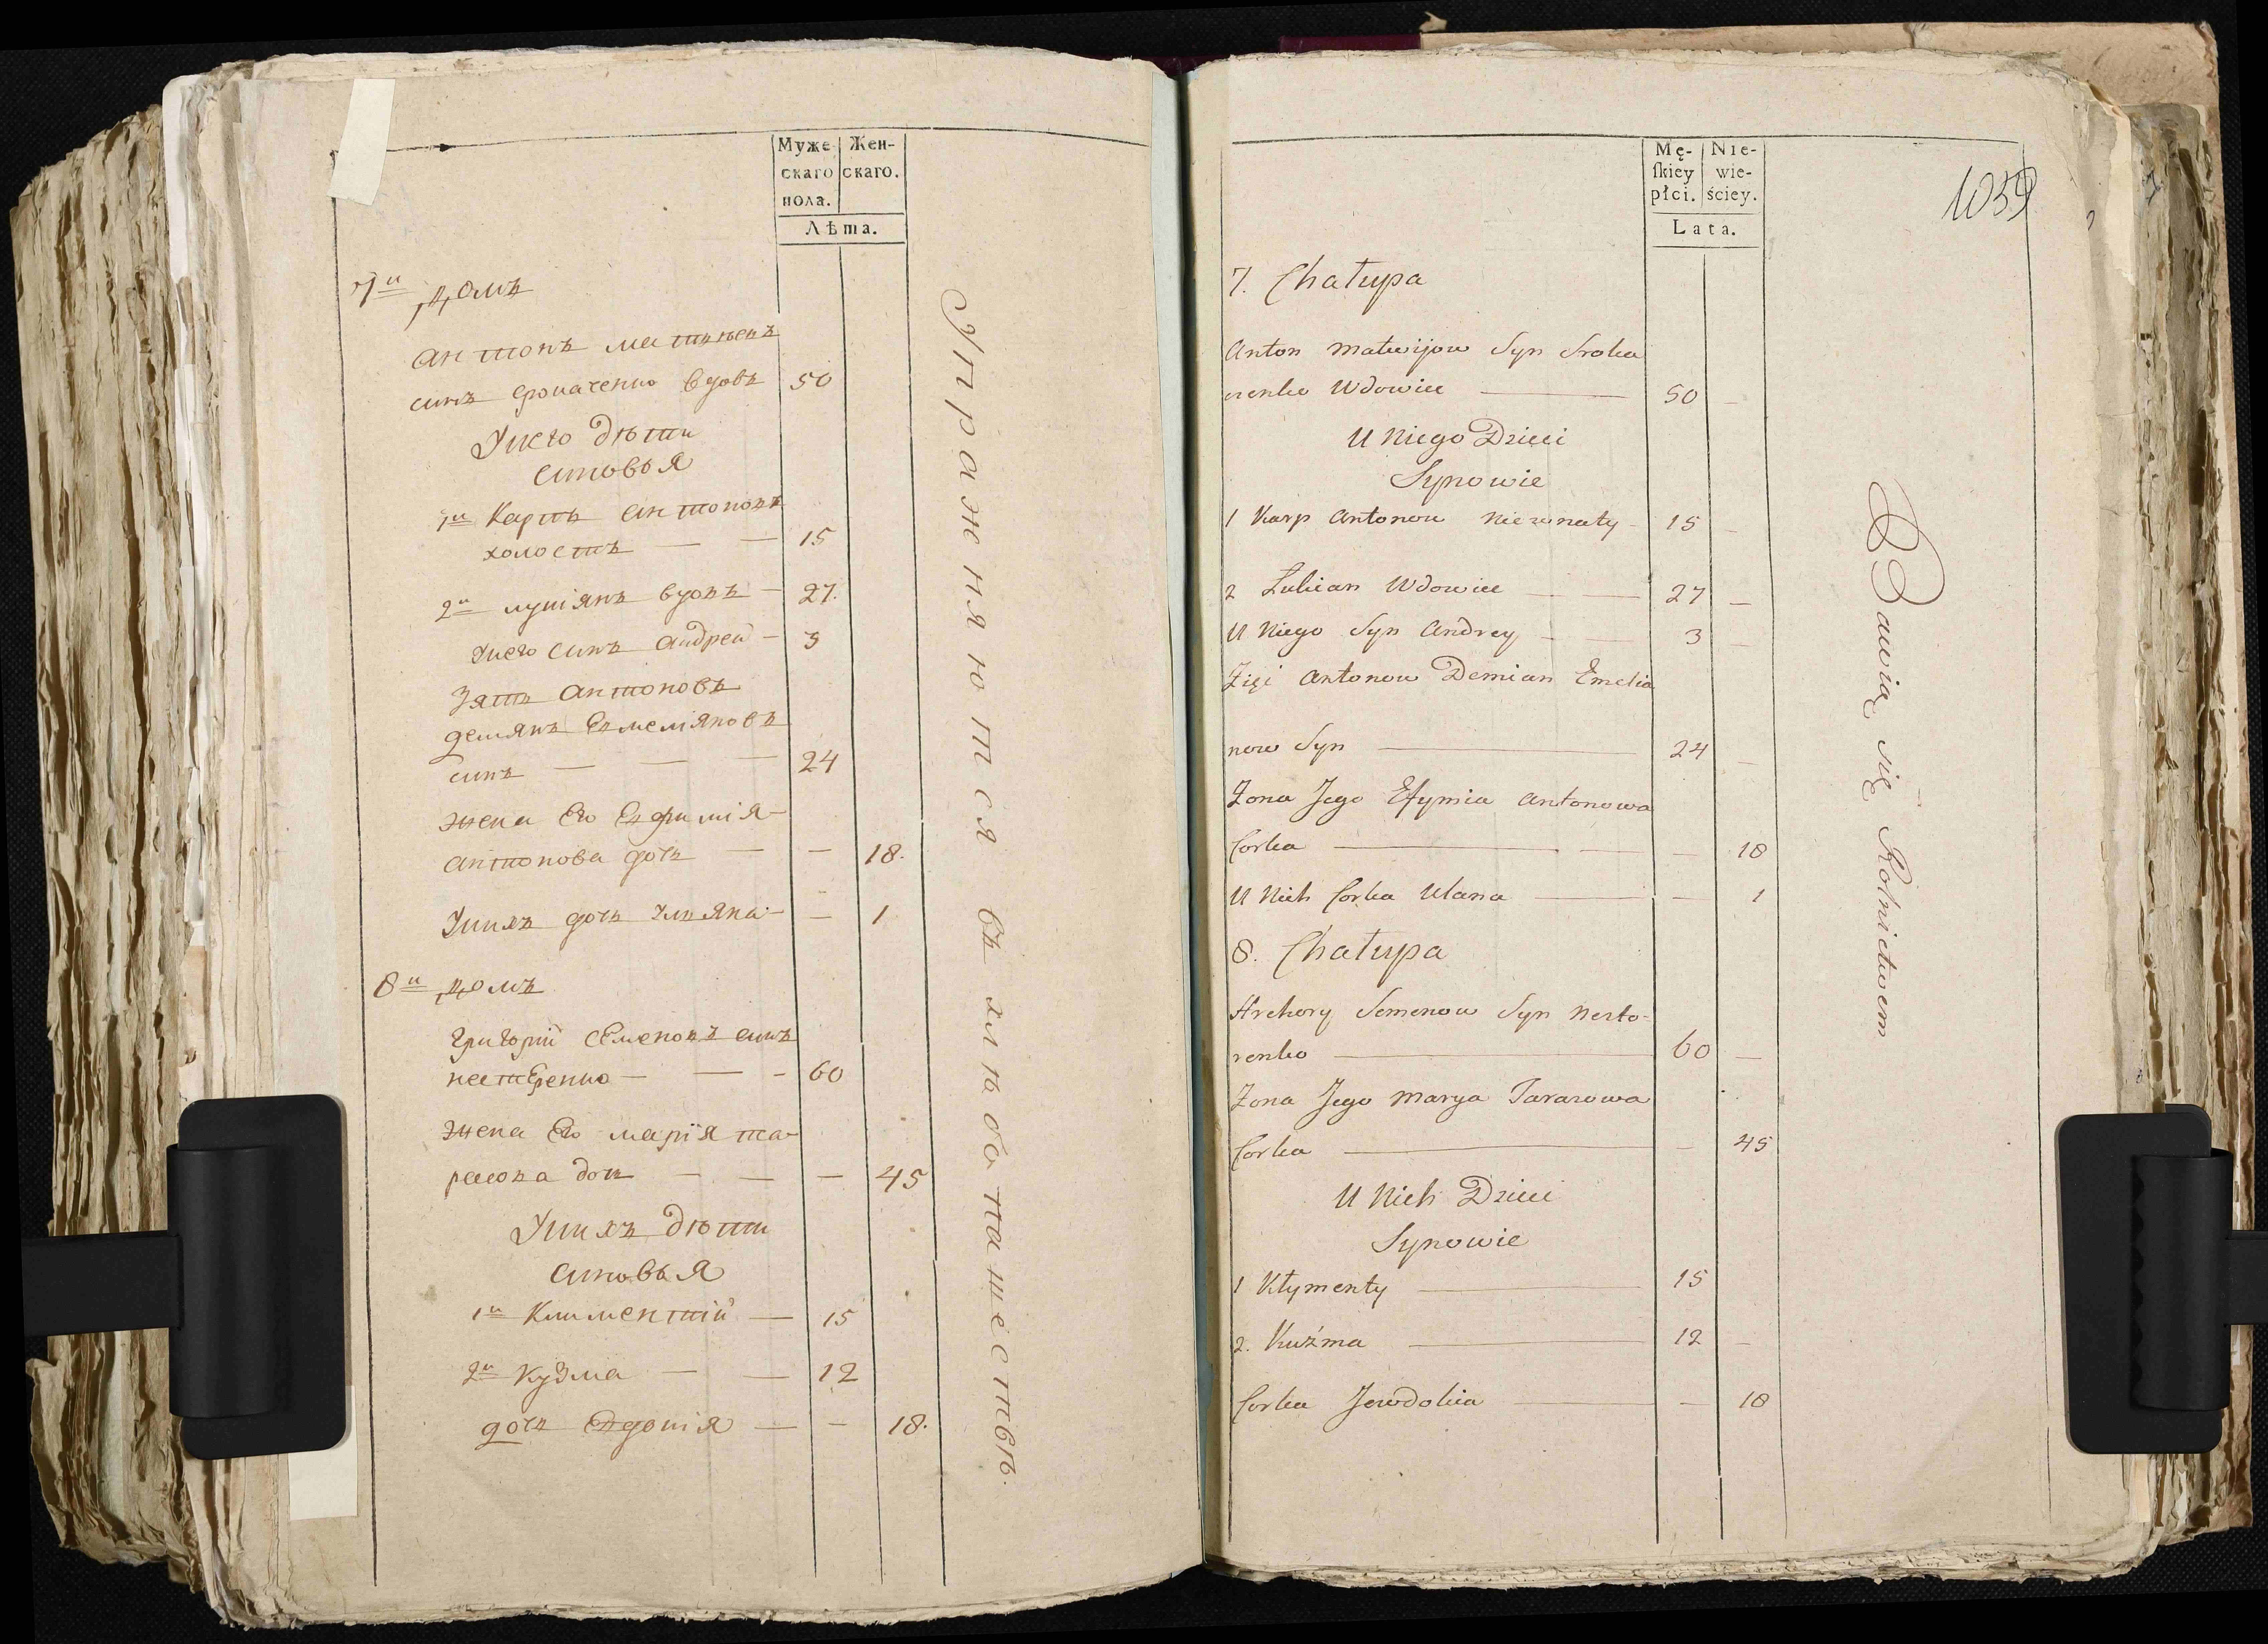 Муже-
скаго
пола.
Жен-
скаго.
Лѣта.
7й домъ
антонъ матвѣевъ
синъ сроначенко вдовъ 50
Унего дѣти
синовья
1й Карпъ антоновъ
холостъ — — 15
2й луціянъ вдовъ — 27.
Унего синъ андрей — 3
Зять антоновъ
демянъ Емеліяновъ
синъ — — — 24
жена Его Евфимія
антонова дочь — — 18.
Унихъ дочь Уляна — — 1
8й домъ
Григорій Семеновъ синъ
нестеренко — — - 60
жена Его марія та-
расова дочь — — — 45
Унихъ дѣти
синовья
1й Климентій — 15
2й Кузма — — 12
дочь Евдокія — — 18.
Упражняются въ хлѣбопашествѣ.
Mę-
ſkiey
płci.
Nie-
wie-
ściey.
Lata.
1039
7. Chałupa
Anton Matwijow Syn Sroka
czenko Wdowiec — 50 —
U Niego Dzieci
Synowie
1 Karp Antonow Nieżonaty - 15 —
2 Łukian Wdowiec — — 27 —
U Niego Syn Andrey — — 3 —
Zięć Antonow Demian Emelia
now Syn — 24 —
Żona Jego Efymia Antonowa
Corka — — — 18
U Nich Corka Ulana — — 1
8. Chałupa
Hrehory Semenow Syn Nesto-
renko — 60 —
Żona Jego Marya Tarasowa
Corka — — 45
U Nich Dzieci
Synowie
1 Kłymenty — 15
2. Kuźma — 12 —
Corka Jewdokia — — 18
Bawią się Rolnictwem